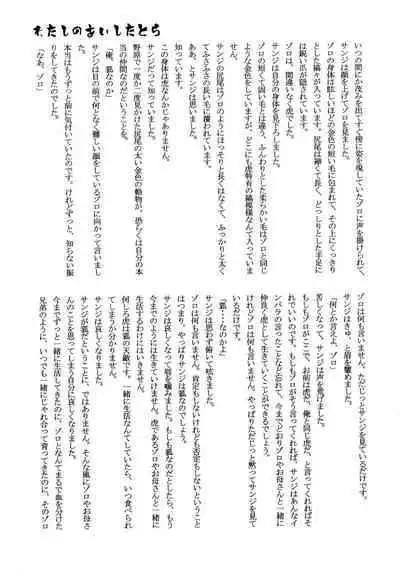 わたしのあいしたとら
いつの間にか茂みを出てすぐ傍に姿を現していたゾロに声を掛けられて、
サンジは顔を上げてゾロを見ました。
ゾロの身体は眩しいほどの金色の毛に包まれて、その金色にはくっきり
とした縞々が入っています。尻尾は細くて長く、どっしりとした手足に
は鋭い爪が隠されています。
ゾロは、間違いなく虎でした。
サンジは自分の身体を見下ろしました。
ゾロの短くて固い毛とは違う、ふんわりとした柔らかい毛はゾロと同じ
ような金色をしていますが、どこにも虎特有の縞模様なんて入っていま
せん。
サンジの尻尾はゾロのようにほっそりと長くはなくて、ふっかりと太く
てふさふさの長い毛に覆われています。
ああ、とサンジは思いました。
知っています。
この身体は虎なんかじゃありません。
サンジだって知っていました。
野路で一度か二度見かけた尻尾の太い金色の動物が、恐らくは自分の本
当の仲間なのだということを。
「俺、狐なのか」
サンジは目の前で何となく難しい顔をしているゾロに向かって言いまし
た。
本当はもうずっと前に気付いていたのです。けれどずっと、知らない振
りをしてきたのでした。
「なあ、ゾロ」
ゾロは何も言いません。ただじっとサンジを見ているだけです。
サンジはきゅ、と眉を顰めました。
「何とか言えよ、ゾロ」
苦しくなって、サンジは声を荒げました。
もしもゾロがここで、お前は虎だ、俺と同じ虎だ、と言ってくれればそ
れでいいのです。もしもゾロがそう言ってくれれば、サンジはあんなイ
ンパラの言ったことなど忘れて、今までどおりゾロやお母さんと一緒に
仲良く虎として生きていくことができるでしょう。
けれどゾロは何も言いません。やっぱりただじっと黙ってサンジを見て
いるだけです。
「狐・・・なのかよ」
サンジは思わず俯いて呟きました。
ゾロは何も言いません。肯定もしないけれども否定もしないということ
はつまり、やっぱりサンジは狐なのでしょう。
サンジは哀しくなって唇を噛みました。もしも狐なのだとしたら、もう
今までのようには生きていけません。虎であるゾロやお母さんと一緒に
生活するわけにはいきません。
何しろ虎は狐の天敵です。一緒に生活なんてしていたら、いつ食べられ
てしまうか分かりません。
サンジは哀しくなりました。
サンジが狐だということに、ではありません。そんな風にゾロやお母さ
んのことを思ってしまう自分に哀しくなったのです。
今までずっと一緒に生活してきたのに、ゾロとなんてまるで血を分けた
兄弟のように、いつでも一緒にじゃれ合って育ってきたのに、そのゾロ